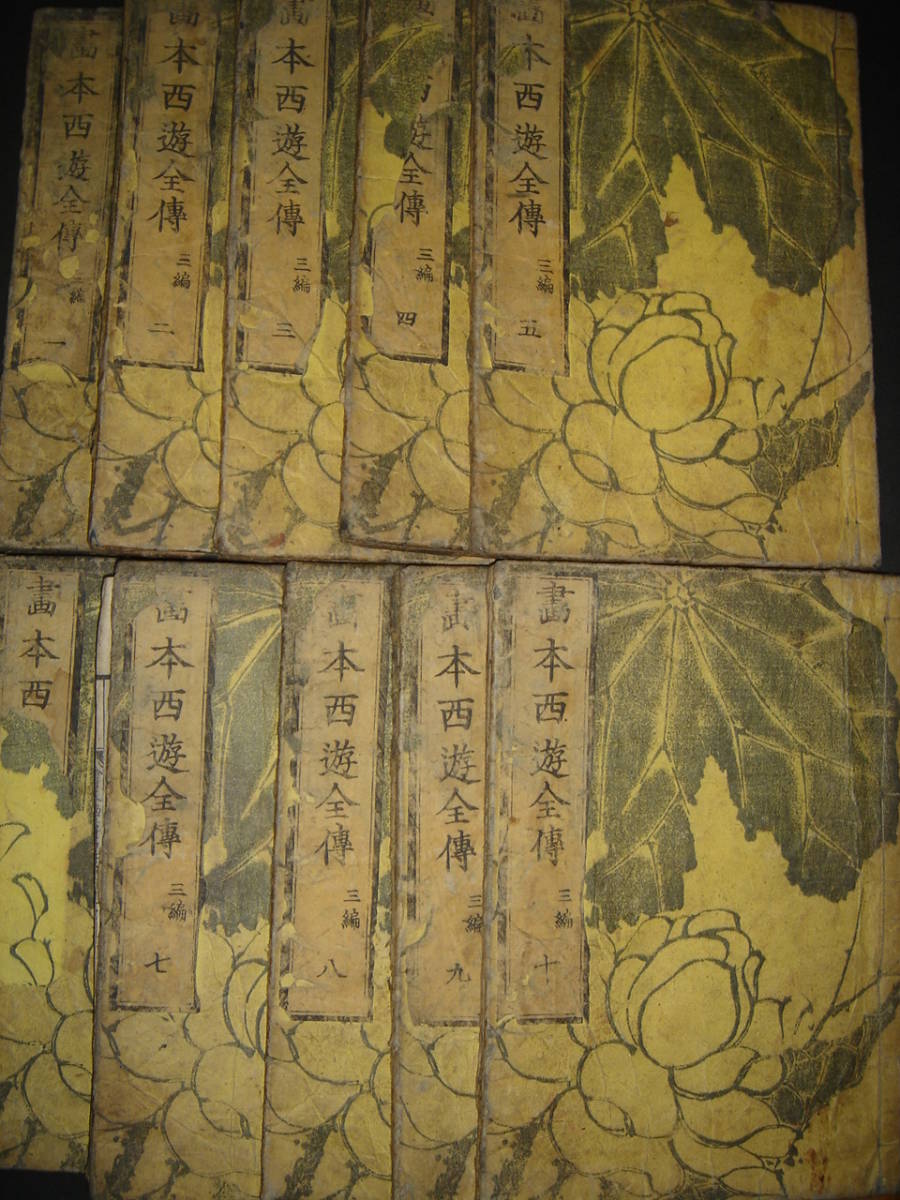 畫本西遊全傳 三編 一
畫本西遊全傳 三編 二
畫本西遊全傳 三編 三
遊全傳 三編 四
本西遊全傳 三編 五
畫本西
畫本西遊全傳 三編 七
畫本西遊全傳 三編 八
畫本西遊全傳 三編 九
畫本西遊全傳 三編 十